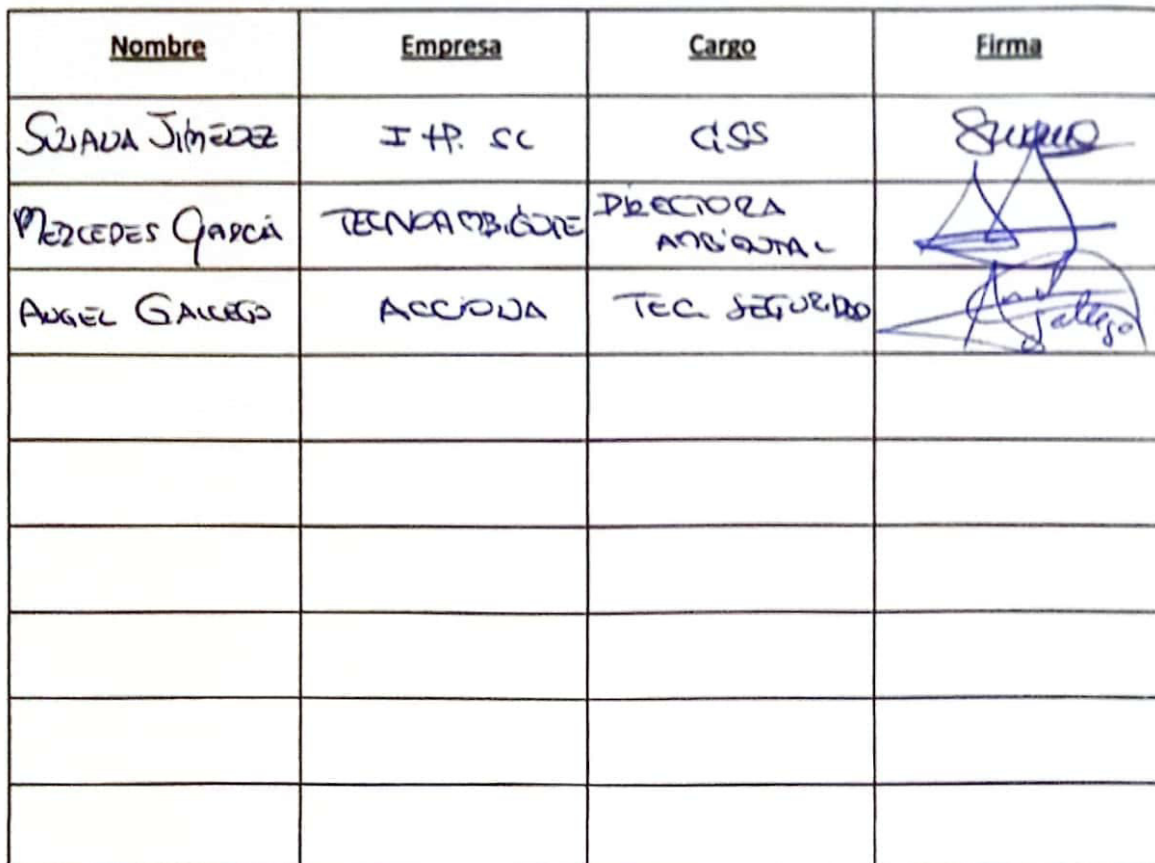 Nombre Empresa Cargo Firma
SUSANA JIMÉNEZ I+P. SC CSS
MERCEDES GARCÍA TECNOAMBIENTE DIRECTORA
AMBIENTAL
ANGEL GALLEGO ACCIONA TEC. SEGURIDAD
Gallego